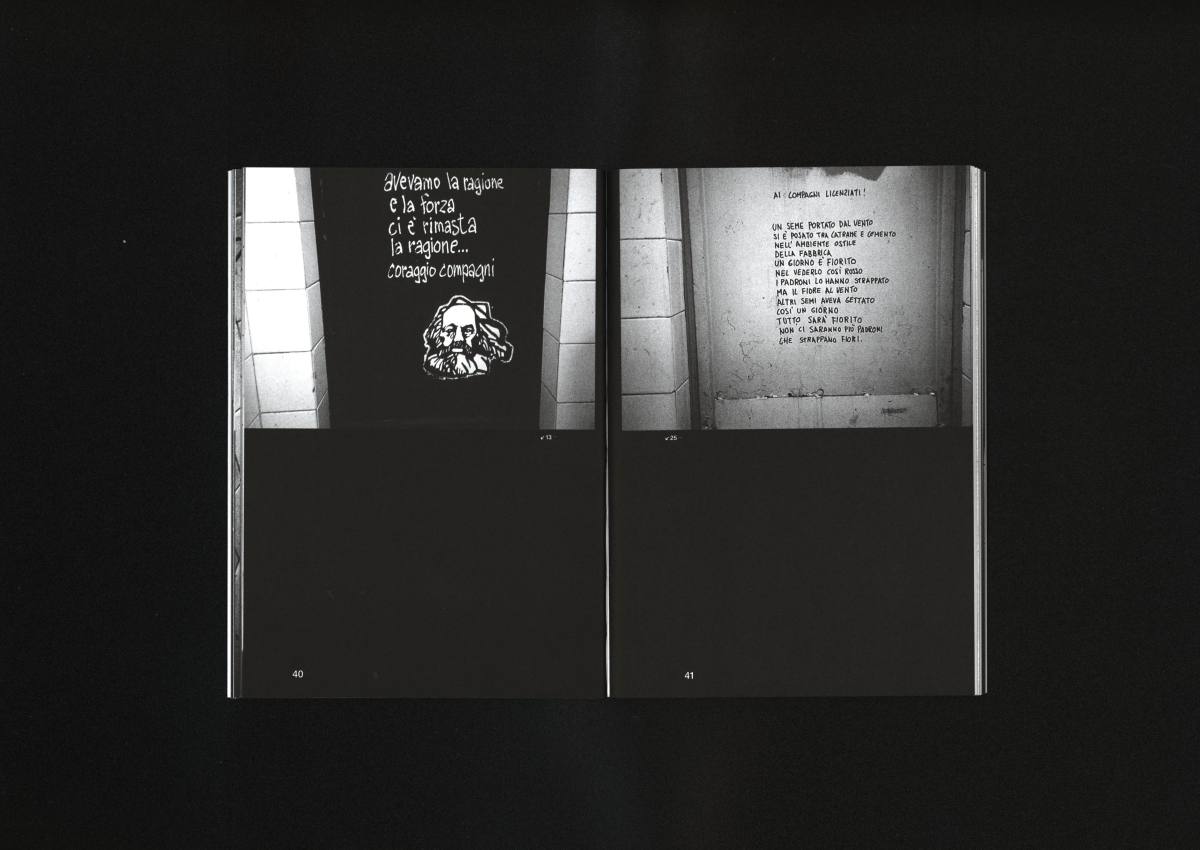 avevamo la ragione
e la forza
ci è rimasta
la ragione...
coraggio compagni
↙13
40
AI COMPAGNI LICENZIATI!
UN SEME PORTATO DAL VENTO
SI È POSATO TRA CATRAME E CEMENTO
NELL'AMBIENTE OSTILE
DELLA FABBRICA
UN GIORNO È FIORITO
NEL VEDERLO COSÌ ROSSO
I PADRONI LO HANNO STRAPPATO
MA IL FIORE AL VENTO
ALTRI SEMI AVEVA GETTATO
COSI' UN GIORNO
TUTTO SARA' FIORITO
NON CI SARANNO PIÙ PADRONI
CHE STRAPPANO FIORI.
↙25
41